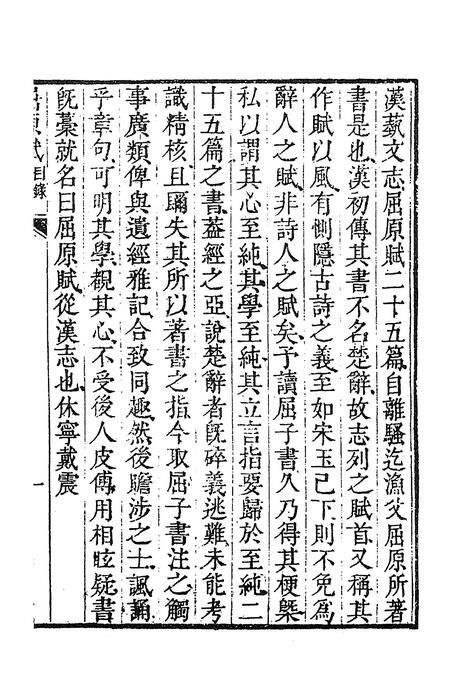 漢藝文志屈原賦二十五篇自離騷迄漁父屈原所著
書是也漢初傳其書不名楚辭故志列之賦首又稱其
作賦以風有惻隱古詩之義至如宋玉已下則不免爲
辭人之賦非詩人之賦矣予讀屈子書久乃得其梗槩
私以謂其心至純其學至純其立言指要歸於至純二
十五篇之書蓋經之亞說楚辭者旣碎義逃難未能考
識精核且彌失其所以著書之指今取屈子書注之觸
事廣類俾與遺經雅記合致同趣然後贍涉之士諷誦
乎章句可明其學覩其心不受後人皮傅用相眩疑書
旣藁就名曰屈原賦從漢志也休寧戴震
屈原賦目錄 一